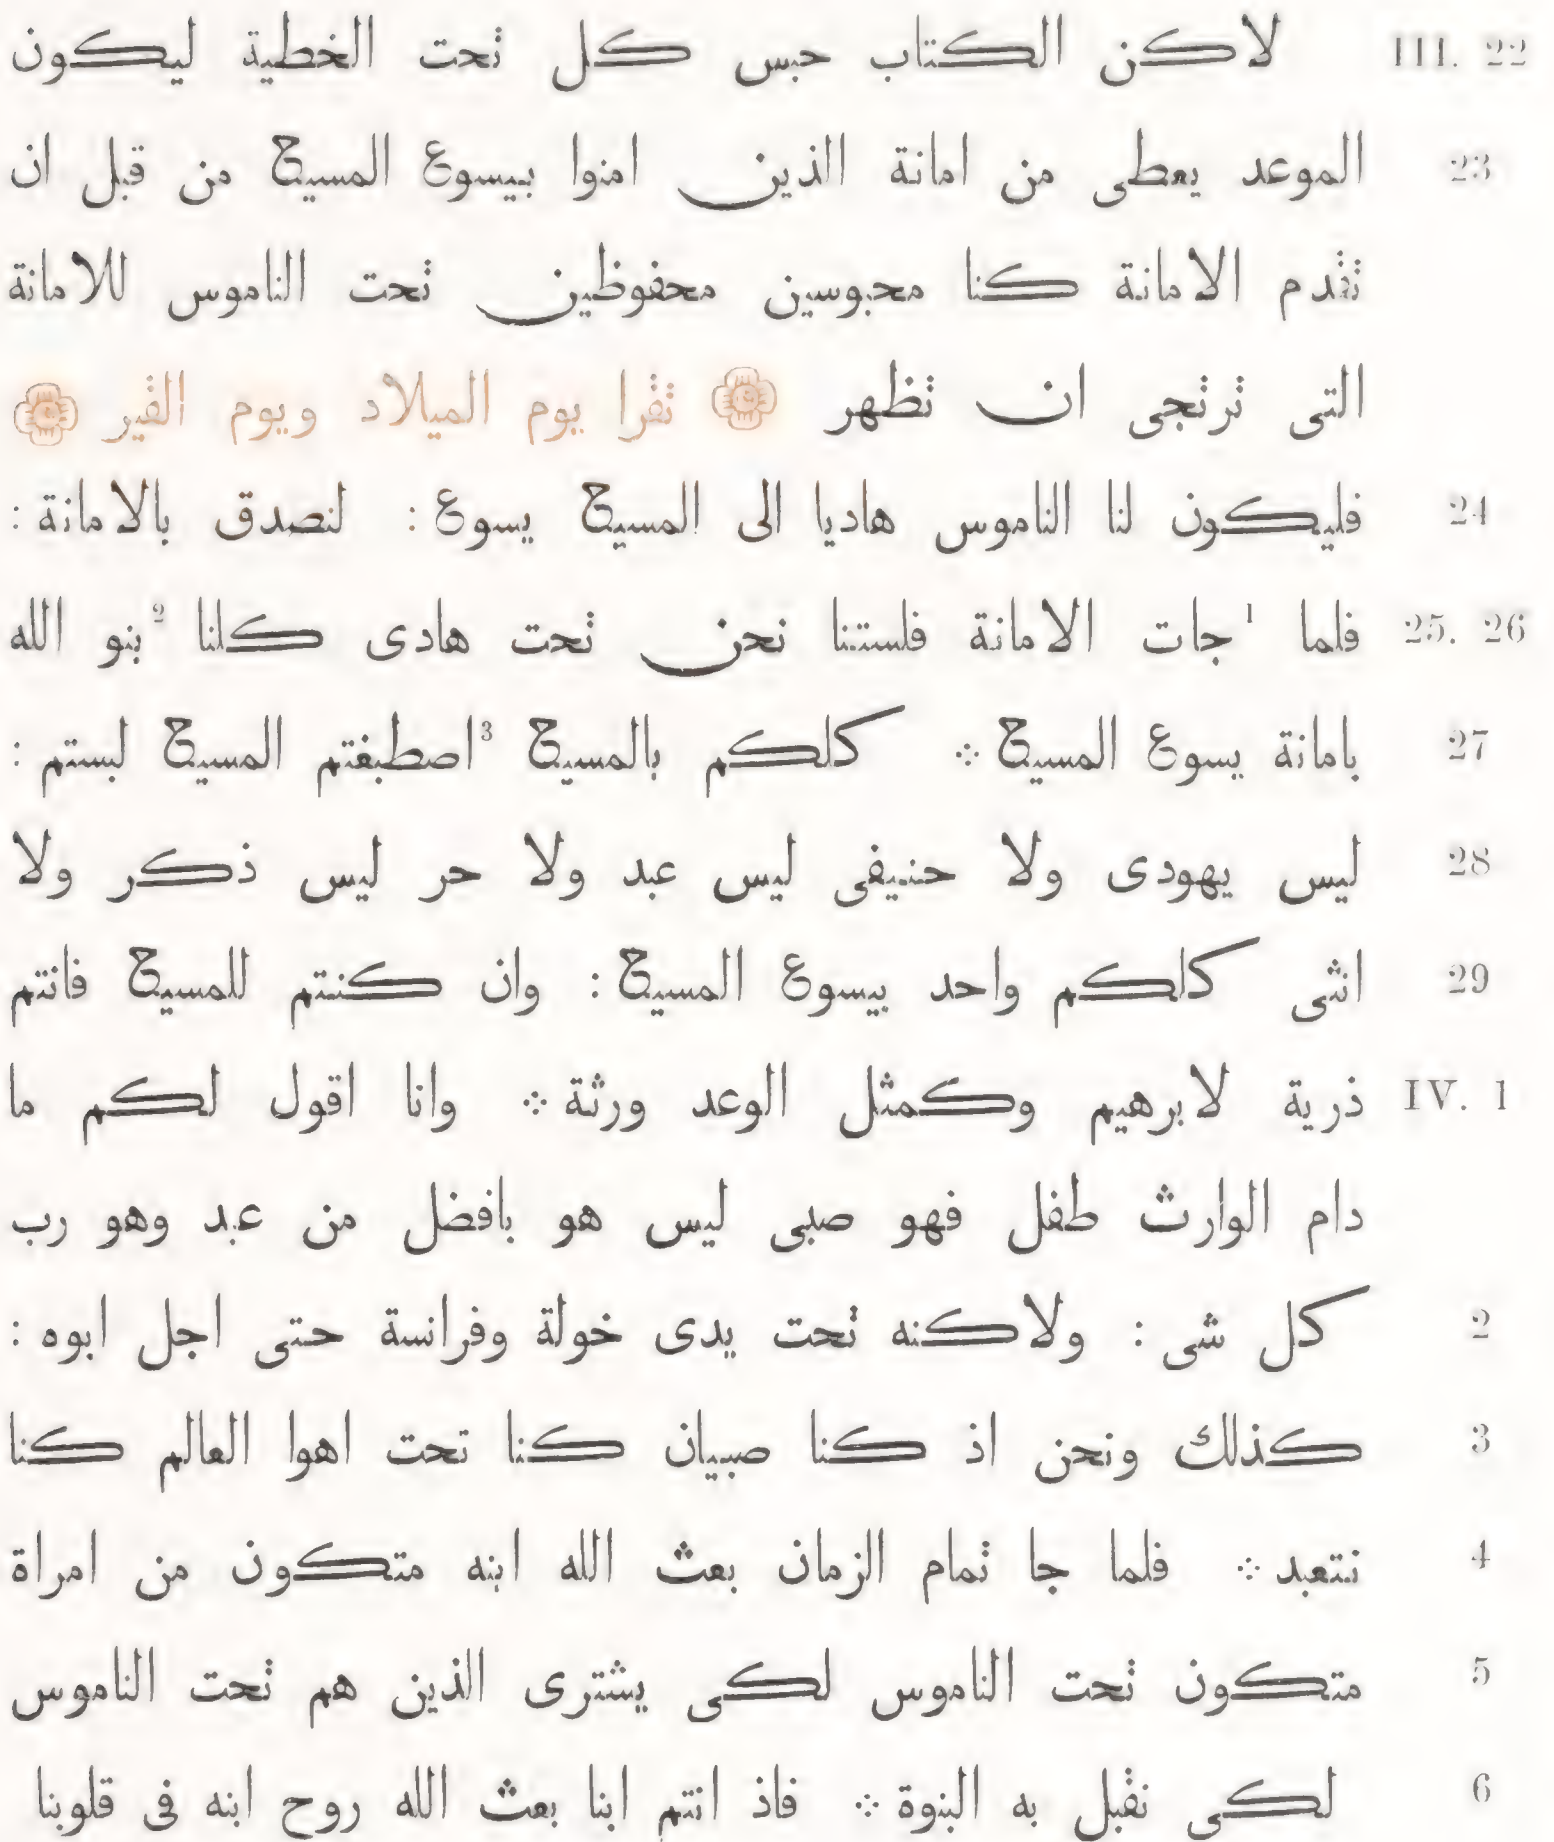 III. 22 لاكن الكتاب حبس كل تحت الخطية ليكون
23 الموعد يعطى من امانة الذين امنوا بيسوع المسيح من قبل ان
تقدم الامانة كنا محبوسين محفوظين تحت الناموس للامانة
التى ترتجى ان تظهر تقرا يوم الميلاد ويوم القير
24 فليكون لنا الناموس هاديا الى المسيح يسوع : لنصدق بالامانة :
25. 26 فلما ¹جات الامانة فلستنا نحن تحت هادى كلنا ²بنو الله
27 بامانة يسوع المسيح ⁘ كلكم بالمسيح ³اصطبغتم المسيح لبستم :
28 ليس يهودى ولا حنيفى ليس عبد ولا حر ليس ذكر ولا
29 انثى كلكم واحد بيسوع المسيح : وان كنتم للمسيح فانتم
IV. 1 ذرية لابرهيم وكمثل الوعد ورثة ⁘ وانا اقول لكم ما
دام الوارث طفل فهو صبى ليس هو بافضل من عبد وهو رب
2 كل شى : ولاكنه تحت يدى خولة وفرانسة حتى اجل ابوه :
3 كذلك ونحن اذ كنا صبيان كنا تحت اهوا العالم كنا
4 نتعبد ⁘ فلما جا تمام الزمان بعث الله ابنه متكون من امراة
5 متكون تحت الناموس لكى يشترى الذين هم تحت الناموس
6 لكى نقبل به البنوة ⁘ فاذ انتم ابنا بعث الله روح ابنه فى قلوبنا